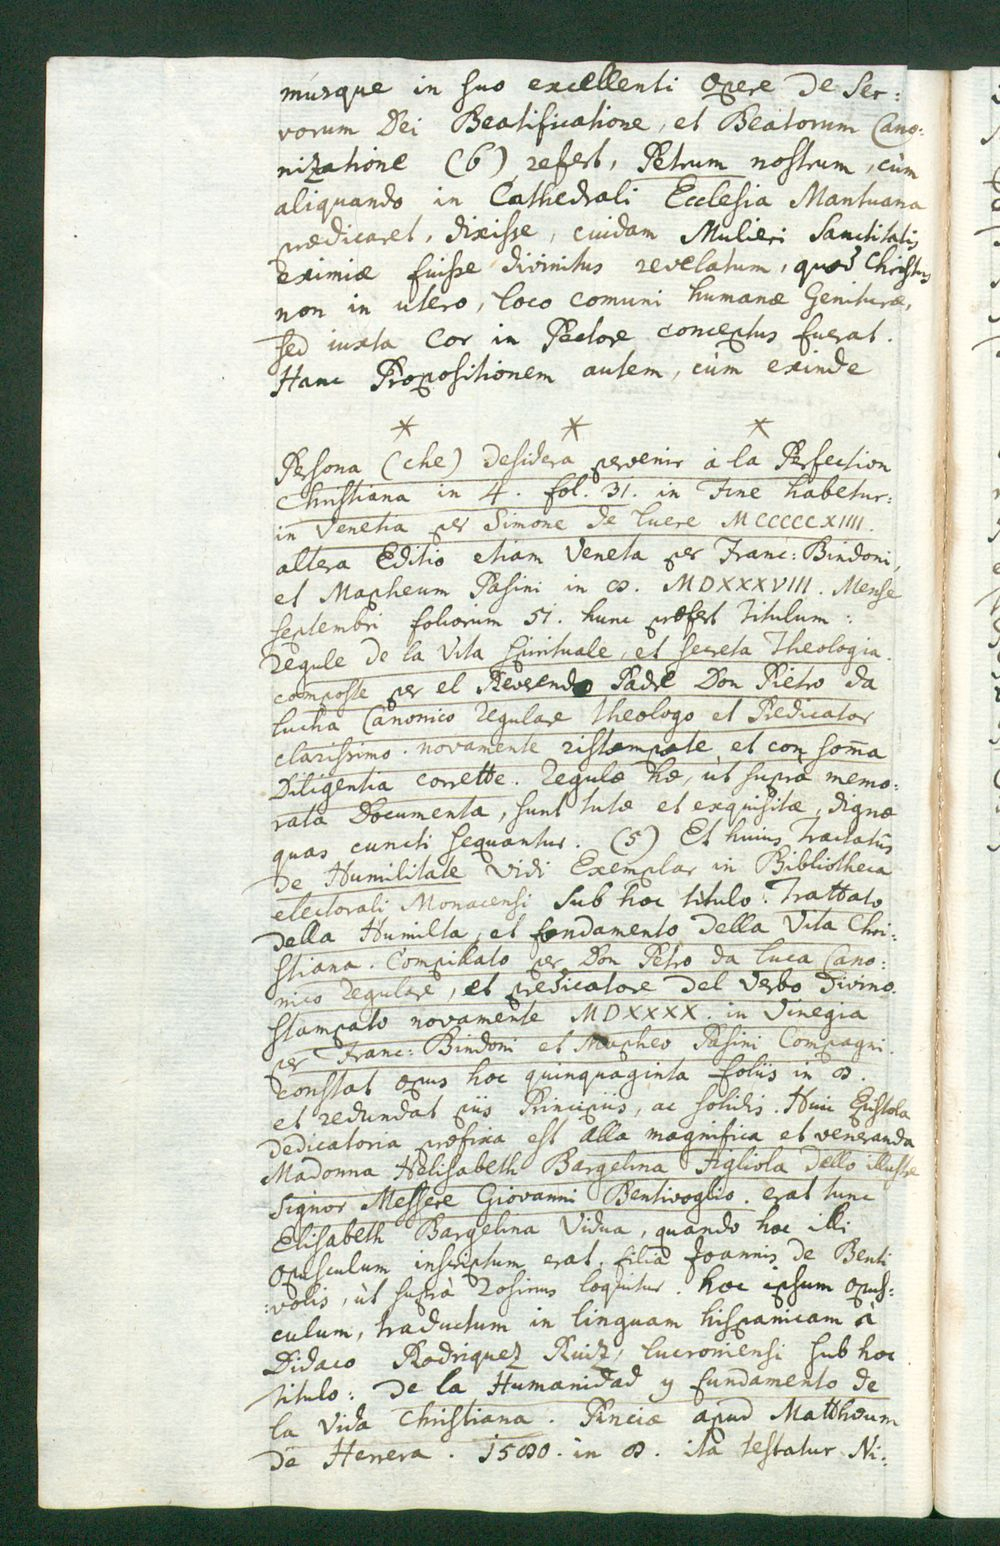 músque in suo excellenti Opere de Ser:
vorum Dei Beatificatione, et Beatorum Cano:
nizatione (6) refert, Petrum nostrum, cùm
aliquando in Cathedrali Ecclesia Mantuana
prædicaret, dixisse, cuidam Mulieri Sanctitatis
eximiæ fuisse divinitus revelatum, quod Christus
non in utero, loco comuni humanæ Genituræ,
sed iuxta Cor in Pectore conceptus fuerat.
Hanc Propositionem autem, cùm exinde
* * *
Persona (che) desidera pervenir à la Perfection
Christiana in 4. fol. 31. in Fine habetur:
in Venetia per Simone de Luere MCCCCCXIIII.
altera Editio etiam Veneta per Franc: Bindoni,
et Mapheum Pasini in 8. MDXXXVIII. Mense
Septembri foliorum 51. hunc præfert titulum:
Regule de la Vita Spirituale, et secreta Theologia.
composte per el Reverendo Padre Don Pietro da
Lucha Canonico regulare theologo et Predicator
clarissimo. novamente ristampate et con som̄a
Diligentia corrette. Regulæ hæ, ùt suprà memo:
rata Documenta, sunt tutæ et exquisitæ, dignæ
quas cuncti sequantur. (5) Et huius Tractatûs
de Humilitate vidi Exemplar in Bibliotheca
electorali Monacensi sub hoc titulo: Trattato
della Humilta, et fondamento della Vita Chri:
stiana. Compillato per Don Petro da Luca Cano:
nico regulare, et predicatore del Verbo Divino.
Stampato novamente MDXXXX. in Vinegia
per Franc: Bindoni et Mapheo Pasini Compagni.
constat opus hoc quinquaginta foliis in 8.
et redundat piis Principiis, ac solidis. Huic Epistola
dedicatoria præfixa est Alla magnifica et veneranda
Madonna Helisabeth Bargelina Figliola dello illustre
Signor Messere Giovanni Bentivoglio. erat tunc
Elisabeth Bargelina Vidua, quando hoc illi
opusculum inscriptum erat, filia Joannis de Benti
:volis, ùt suprà Rosinus loquitur. hoc ipsum opus:
culum, traductum in linguam hispanicam à
Didaco Rodriquez Ruiz, Lucroniensi sub hoc
titulo: de la Humanidad y fundamento de
la Vida Christiana. Pinciæ apud Matthæum
de Herrera. 1580. in 8. ita testatur Ni: